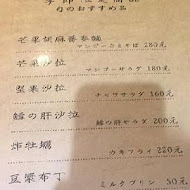 季節限定商品
旬のおすすめ品
芒果胡麻蕎麥麵
マンゴーごまそば 280元
芒果沙拉
マンゴーサラダ 180元
堅果沙拉
ナッツサラダ 160元
鱈の肝沙拉
鱈の肝サラダ 200元
炸牡蠣
カキフライ 220元
豆漿布丁
ミルクプリン 50元